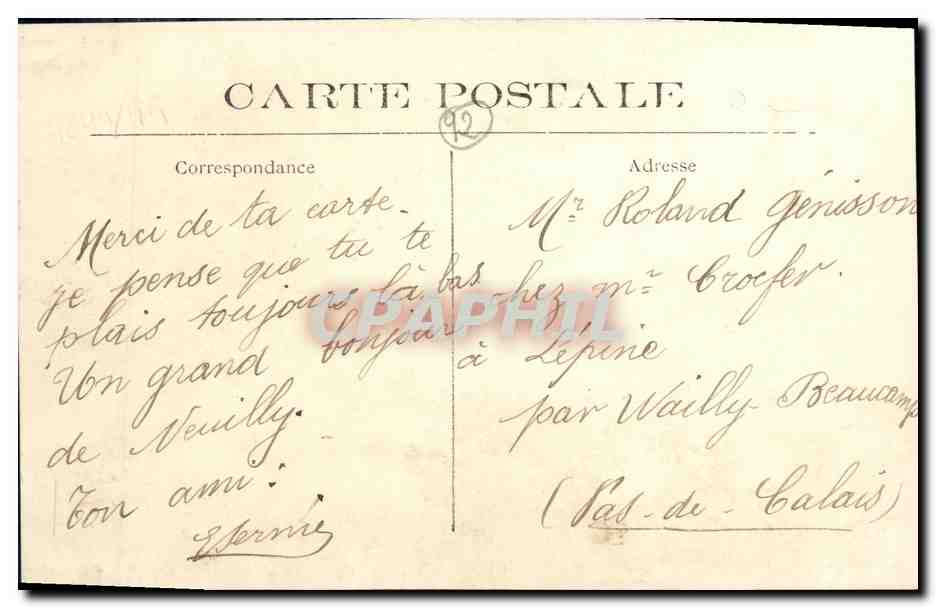 CARTE POSTALE
92
Correspondance
Merci de ta carte.
je pense que tu te
plais toujours là bas
Un grand bonjour
de Neuilly.
Ton ami:
Adresse
Mr Roland Génisson
chez mr Crocfer.
à Lépine
par Wailly-Beaucamp
(Pas-de-Calais)
CPAPHIL